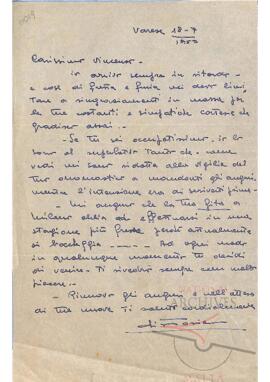 Varese 18-7
Carissimo Vincenzo -
io arrivo sempre in ritardo -
e così di fretta e furia mi devo limi,
tare a ringraziamenti in massa per
le tue costanti e simpatiche cortesie che
gradisco assai. -
- Se tu sei occupatissimo, io lo
sono al
vedi mi sono ridotta alla vigilia del
tuo onomastico a mandarti gli auguri,
mentre l'intenzione era di scriverti prima -
- Mi auguro che la tua gita a
Milano abbia ad effettuarsi in una
stagione più fresca perchè attualmente
si boccheggia - Ad ogni modo
in qualunque momento tu decida
di venire - Ti rivedrò sempre con molto
piacere. -
- Rinnovo gli auguri e nell'attesa
di tue nuove ti saluto cordialmente
ARCHIVES